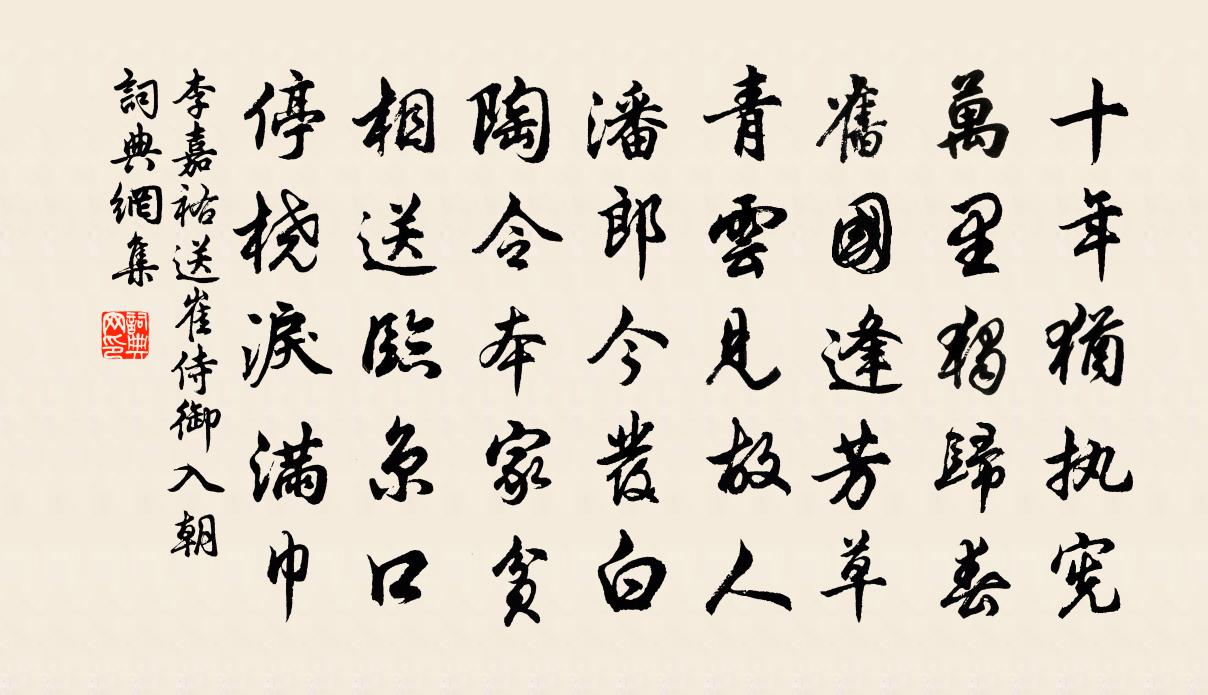 十年猶执宪
萬里獨歸春
舊國逢芳草
青雲見故人
潘郎今發白
陶令本家貧
相送臨京口
停桡淚滿巾
李嘉祐送崔侍御入朝
詞典網集
詞典网印